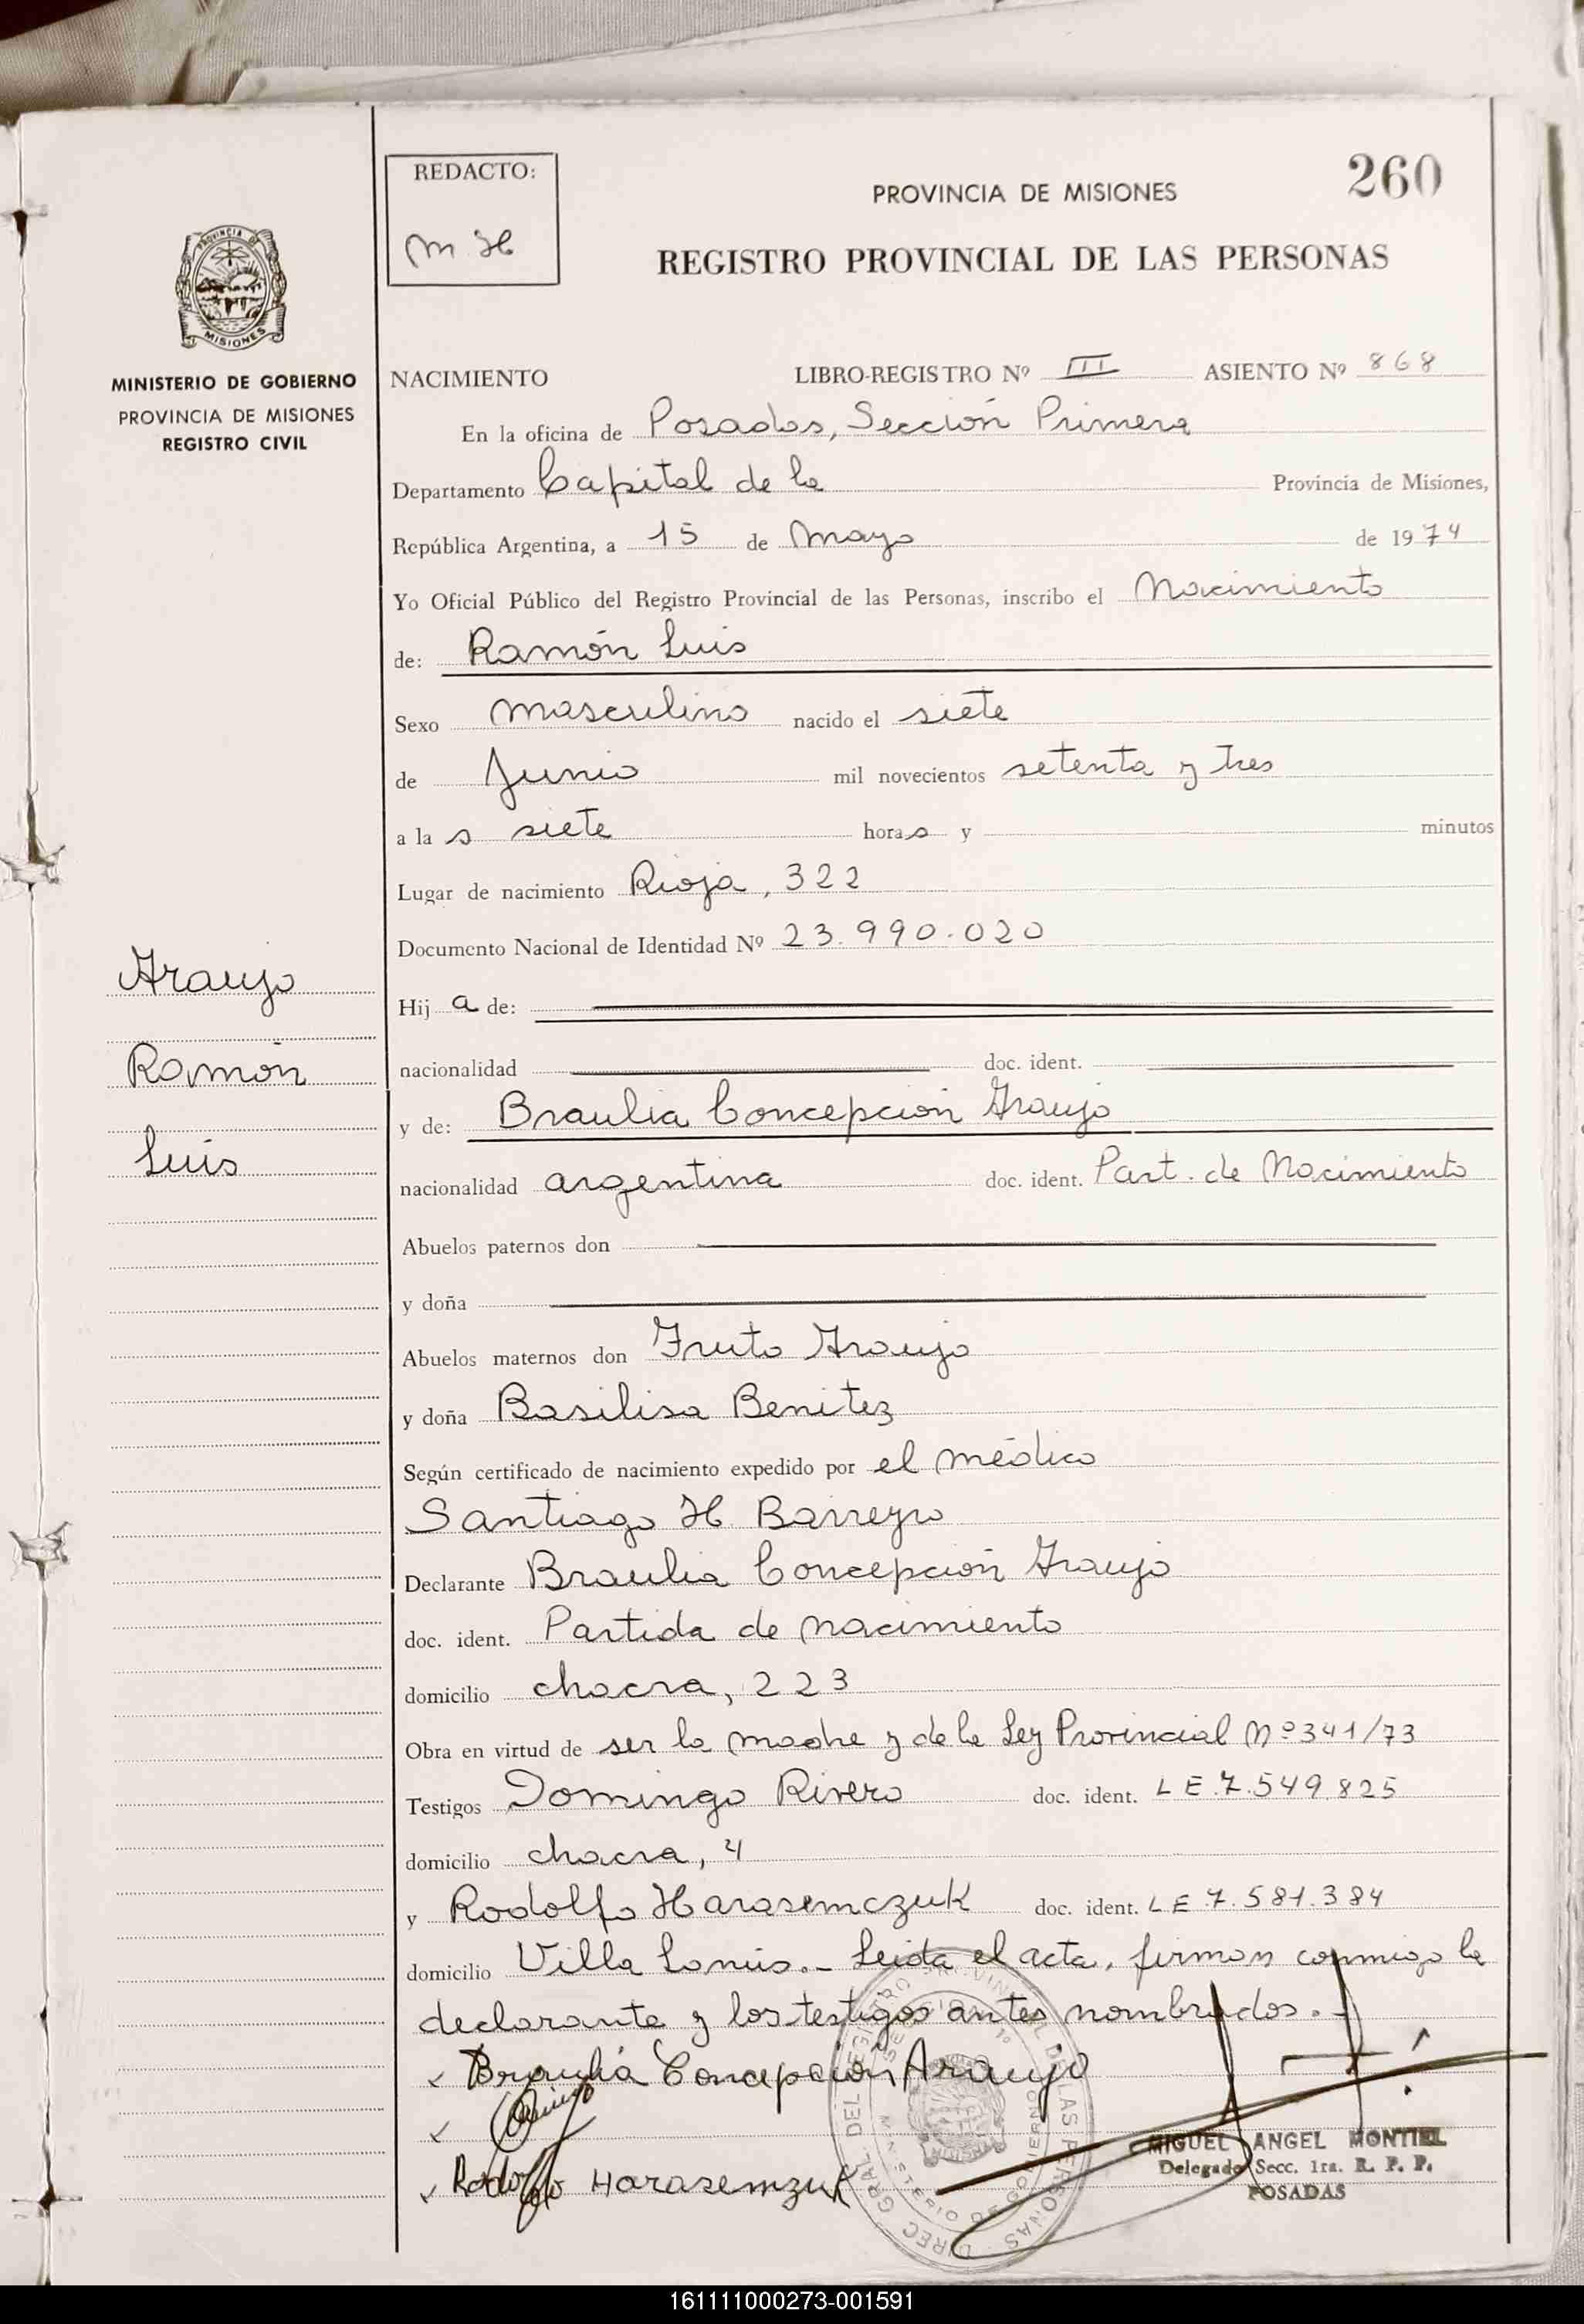 REDACTO:
M H
PROVINCIA DE MISIONES
260
REGISTRO PROVINCIAL DE LAS PERSONAS
PROVINCIA DE
MISIONES
MINISTERIO DE GOBIERNO
PROVINCIA DE MISIONES
REGISTRO CIVIL
NACIMIENTO LIBRO-REGISTRO Nº III ASIENTO Nº 868
En la oficina de Posadas, Sección Primera
Departamento Capital de la Provincia de Misiones,
República Argentina, a 15 de Mayo de 1974
Yo Oficial Público del Registro Provincial de las Personas, inscribo el Nacimiento
de: Ramón Luis
Sexo masculino nacido el siete
de Junio mil novecientos setenta y tres
a la s siete horas y minutos
Lugar de nacimiento Rioja, 322
Documento Nacional de Identidad Nº 23.990.020
Araujo
Ramón
Luis
Hij a de:
nacionalidad doc. ident.
y de: Braulia Concepción Araujo
nacionalidad argentina doc. ident. Part. de Nacimiento
Abuelos paternos don
y doña
Abuelos maternos don Fruto Araujo
y doña Basilisa Benitez
Según certificado de nacimiento expedido por el médico
Santiago H. Barreyro
Declarante Braulia Concepción Araujo
doc. ident. Partida de nacimiento
domicilio chacra, 223
Obra en virtud de ser la madre y de la Ley Provincial Nº 341/73
Testigos Domingo Rivero doc. ident. LE.7.549.825
domicilio chacra, 4
y Rodolfo Harasemczuk doc. ident. LE 7.581.384
domicilio Villa Lanús.- Leída el acta, firman conmigo la
declarante y los testigos antes nombrados.-
Braulia Concepción Araujo
Rodolfo Harasemzuk
DIREC GRAL. DEL REGISTRO PROVINCIAL DE LAS PERSONAS
MINISTERIO DE GOBIERNO
MIGUEL ANGEL MONTIEL
Delegado Secc. 1ra. R. P. P.
POSADAS
161111000273-001591